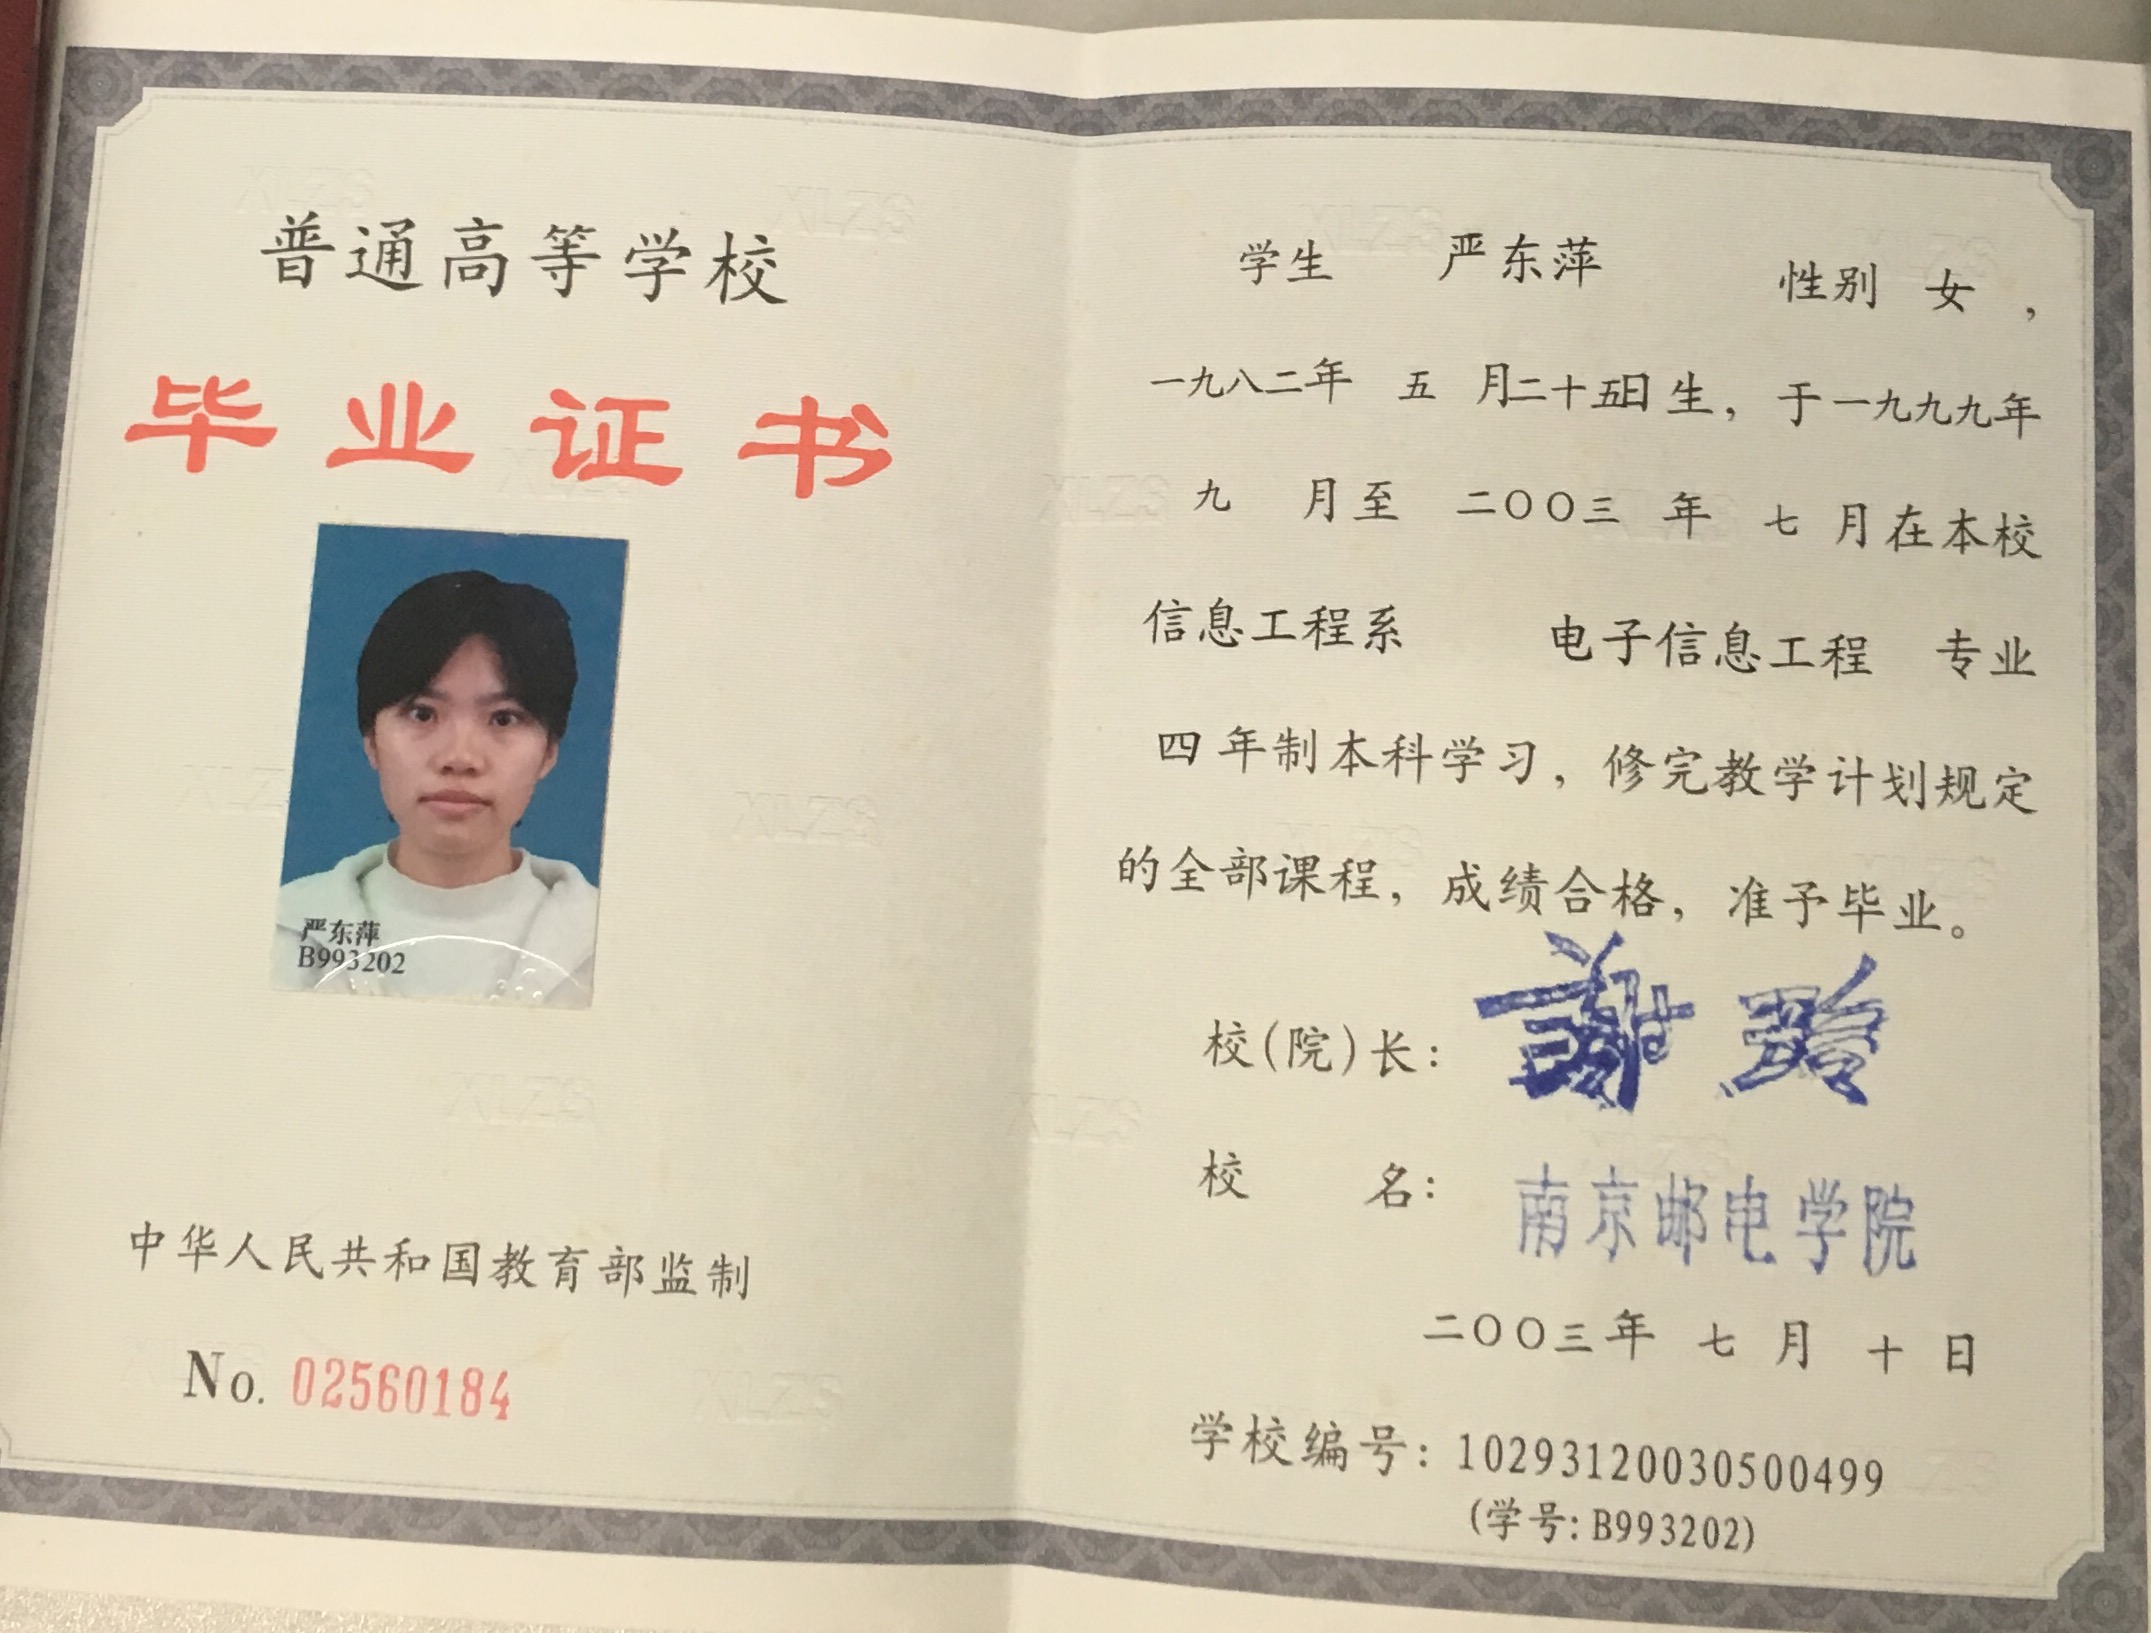 普通高等学校
毕业证书
严东萍
B993202
中华人民共和国教育部监制
No. 02560184
学生 严东萍 性别 女 ，
一九八二年 五 月二十五日生，于一九九九年
九 月至 二〇〇三 年 七 月在本校
信息工程系 电子信息工程 专业
四年制本科学习，修完教学计划规定
的全部课程，成绩合格，准予毕业。
校(院)长：
校 名： 南京邮电学院
二〇〇三年 七 月 十 日
学校编号：102931200305004​99
(学号: B993202)